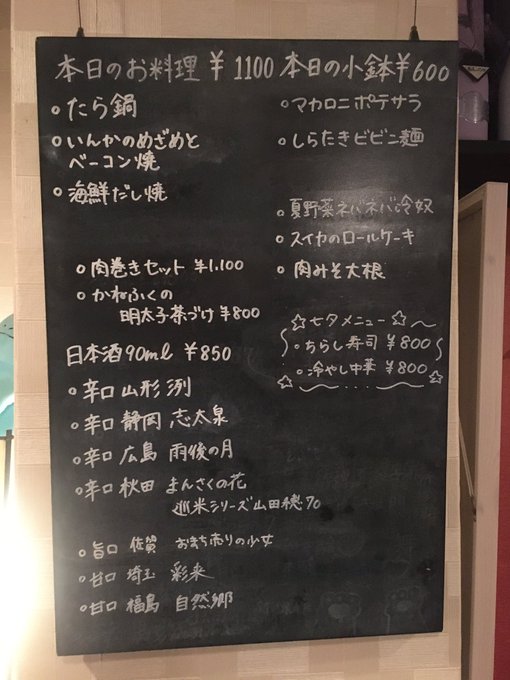 本日のお料理 ¥1100
○たら鍋
○いんかのめざめと
ベーコン焼
○海鮮だし焼
○肉巻きセット ¥1.100
○かねふくの
明太子茶づけ ¥800
本日の小鉢 ¥600
○マカロニポテサラ
○しらたきビビン麺
○夏野菜ネバネバ冷奴
○スイカのロールケーキ
○肉みそ大根
☆七夕メニュー☆
○ちらし寿司 ¥800
○冷やし中華 ¥800
日本酒90ml ¥850
○辛口 山形 洌
○辛口 静岡 志太泉
○辛口 広島 雨後の月
○辛口 秋田 まんさくの花
巡米シリーズ山田穂70
○旨口 佐賀 おまち売りの少女
○甘口 埼玉 彩來
○甘口 福島 自然郷